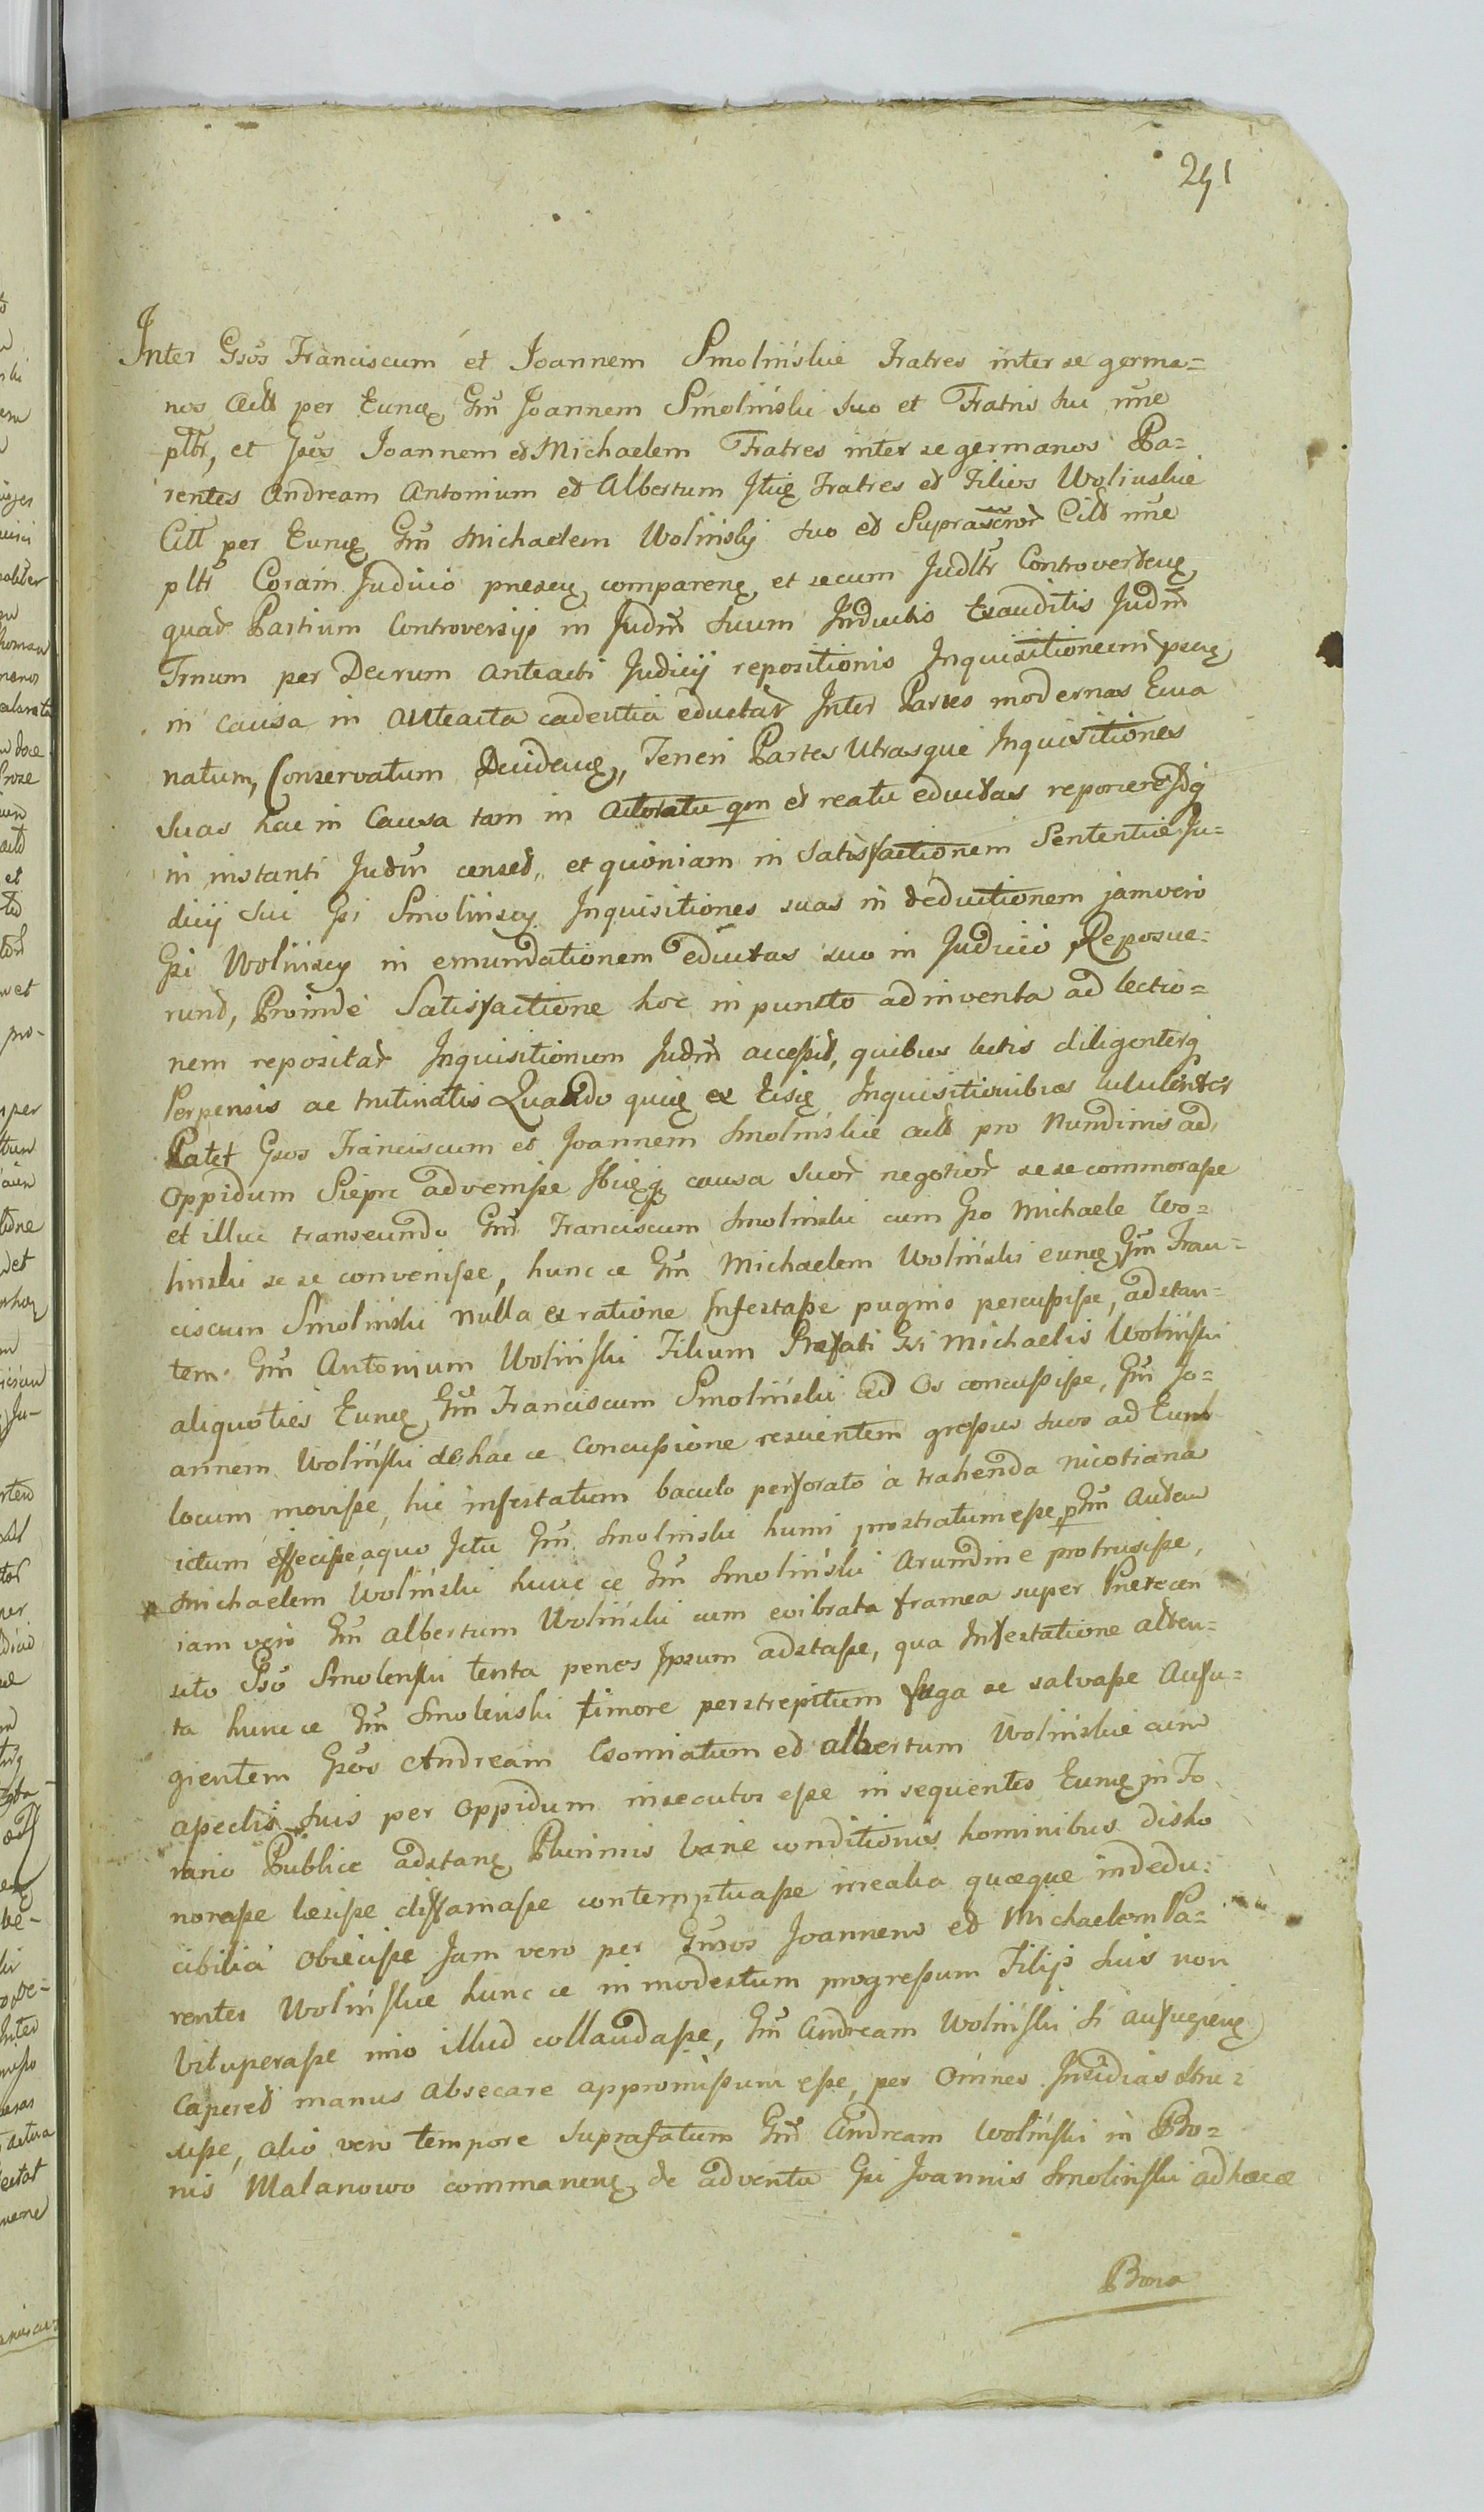 241
Inter Gsos Franciscum et Joannem Smolińskie Fratres inter se germa=
nos Actt per Eunę Gm̃ Joannem Smoliński suo et Fratris sui ñne
pltr, et Gsos Joannem et Michaelem Fratres inter se germanos Pa=
rentes Andream Antonium et Albertum Itię Fratres et Filios Wolinskie
Citt per Eunę Gm̃ Michaelem Wolińsky suo et Suprascr̃nor Citt ñne
pltr Coram Judicio pnexeę comparenę et secum Judltr Controverteng
quar Partium Controversijs in Judm̃ suum Inductis Exauditis Judm̃
Trnum per Decrum anteacti Judicij repositionis Inquisitionem
in causa in anteacta cadentia eductar Inter Partes modernas Ema
natum, Conservatum Decidenę, Teneri Partes Utrasque Inquisitiones
suas hac in Causa tam in actoratu qm et reatu eductas reponere Idq
in instanti Judm̃ censet, et quoniam in satisfactionem Sententiæ Ju=
dicij sui Gsi Smolinscy Inquisitiones suas in deductionem jamvero
Gsi Wolinscy in emundationem eductas suo in Judicio Reposue=
runt, Proinde Satisfactione hoc in puncto adinventa ad lectio=
nem repositar Inquisitionum Judm̃ accessit, quibus lectis diligenterq
Perpensis ac trutinatis Quando quię ex Eisę Inquisitionibus luculenter
Patet Gsos Franciscum et Joannem Smolińskie actt pro Nundinis ad
Oppidum Sieprc advenisse Ibięq causa suor negotior sese commorasse
et illuc transeundo Gm̃ Franciscum Smolinski cum Gso Michaele Wo=
linski se se convenisse, hunc ce Gm̃ Michaelem Woliński eunę Gm̃ Fran=
ciscum Smolinski nulla ex ratione Infestasse pugnis percussisse, adstan=
tem Gm̃ Antonium Woliński Filium Præfati Gsi Michaelis Woliński
aliquoties Eunę Gm̃ Franciscum Smoliński ad Os concussisse, Gm̃ Jo=
annem Woliński de hac ce Concussione rescientem gressus suos ad Eunt
locum movisse, hic infestatum baculo perforato a trahenda nicotiana
ictum effecisse, a quo Ictu Gm̃ Smolinski humi prostratum esse, Gm̃ Autem
Michaelem Woliński hunc ce Gm̃ Smoliński Arundine protrusisse,
iam vero Gm̃ Albertum Woliński cum evibrata framea super Prerecen
sito Gso Smolenski tenta penes Ipsum adstasse, qua Infestatione atten=
ta hunc ce Gm̃ Smolenski timore perstrepitum fuga se salvasse Aufu=
gientem Gsos Andream Antonium et Albertum Wolińskie cum
asseclis suis per oppidum insecutos esse insequentes Eunę in Fo
rario Publice adstanę Plurimis variæ conditionis hominibus disho
norasse læsisse diffamasse contemptuasse irrealia quæque indedu=
cibilia Obiecisse Jam vero per Gnsos Joannem et Michaelem Pa=
rentes Wolińskie hunc ce in modestum progressum Filijs suis non
vituperasse imo illud collaudasse, Gm̃ Andream Woliński si aufugienę
caperet manus absecare appromissum esse, per Omnes Insidias stru=
xisse, alio vero tempore suprafatum Gm̃ Andream Woliński in Bo=
nis Malanowo commanenę de adventu Gsi Joannis Smolinski ad hæcce
Bona